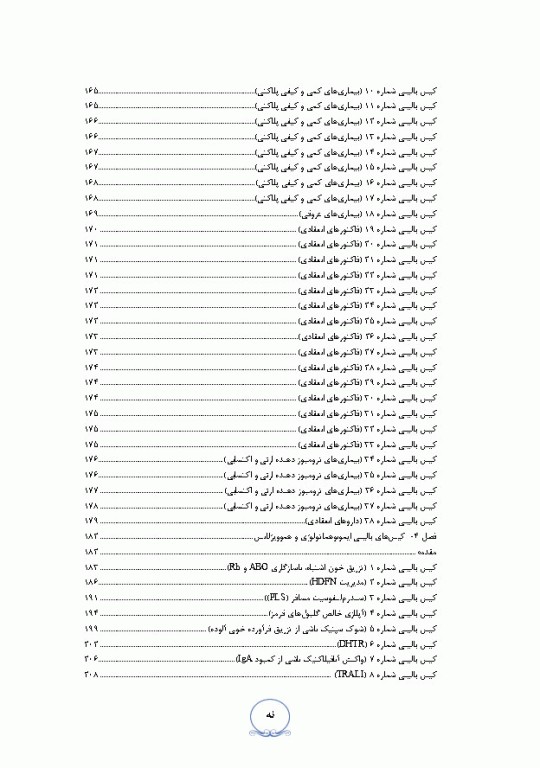 کیس بالینی شماره ۱۰ (بیماری‌های کمی و کیفی پلاکتی)........۱۶۵
کیس بالینی شماره ۱۱ (بیماری‌های کمی و کیفی پلاکتی)........۱۶۵
کیس بالینی شماره ۱۲ (بیماری‌های کمی و کیفی پلاکتی)........۱۶۶
کیس بالینی شماره ۱۳ (بیماری‌های کمی و کیفی پلاکتی)........۱۶۶
کیس بالینی شماره ۱۴ (بیماری‌های کمی و کیفی پلاکتی)........۱۶۷
کیس بالینی شماره ۱۵ (بیماری‌های کمی و کیفی پلاکتی)........۱۶۷
کیس بالینی شماره ۱۶ (بیماری‌های کمی و کیفی پلاکتی)........۱۶۸
کیس بالینی شماره ۱۷ (بیماری‌های کمی و کیفی پلاکتی)........۱۶۸
کیس بالینی شماره ۱۸ (بیماری‌های عروقی)........۱۶۹
کیس بالینی شماره ۱۹ (فاکتورهای انعقادی)........۱۷۰
کیس بالینی شماره ۲۰ (فاکتورهای انعقادی)........۱۷۱
کیس بالینی شماره ۲۱ (فاکتورهای انعقادی)........۱۷۱
کیس بالینی شماره ۲۲ (فاکتورهای انعقادی)........۱۷۱
کیس بالینی شماره ۲۳ (فاکتورهای انعقادی)........۱۷۲
کیس بالینی شماره ۲۴ (فاکتورهای انعقادی)........۱۷۲
کیس بالینی شماره ۲۵ (فاکتورهای انعقادی)........۱۷۳
کیس بالینی شماره ۲۶ (فاکتورهای انعقادی)........۱۷۳
کیس بالینی شماره ۲۷ (فاکتورهای انعقادی)........۱۷۳
کیس بالینی شماره ۲۸ (فاکتورهای انعقادی)........۱۷۴
کیس بالینی شماره ۲۹ (فاکتورهای انعقادی)........۱۷۴
کیس بالینی شماره ۳۰ (فاکتورهای انعقادی)........۱۷۴
کیس بالینی شماره ۳۱ (فاکتورهای انعقادی)........۱۷۵
کیس بالینی شماره ۳۲ (فاکتورهای انعقادی)........۱۷۵
کیس بالینی شماره ۳۳ (فاکتورهای انعقادی)........۱۷۵
کیس بالینی شماره ۳۴ (بیماری‌های ترومبوز دهنده ارثی و اکتسابی)........۱۷۶
کیس بالینی شماره ۳۵ (بیماری‌های ترومبوز دهنده ارثی و اکتسابی)........۱۷۶
کیس بالینی شماره ۳۶ (بیماری‌های ترومبوز دهنده ارثی و اکتسابی)........۱۷۷
کیس بالینی شماره ۳۷ (بیماری‌های ترومبوز دهنده ارثی و اکتسابی)........۱۷۸
کیس بالینی شماره ۳۸ (داروهای انعقادی)........۱۷۹
فصل ۰۴- کیس‌های بالینی ایمونوهماتولوژی و هموویژلانس........۱۸۲
مقدمه........۱۸۳
کیس بالینی شماره ۱ (تزریق خون اشتباه، ناسازگاری ABO و Rh)........۱۸۳
کیس بالینی شماره ۲ (مدیریت HDFN)........۱۸۶
کیس بالینی شماره ۳ (سندرم لنفوسیت مسافر (PLS))........۱۹۱
کیس بالینی شماره ۴ (آپلازی خالص گلبول‌های قرمز)........۱۹۴
کیس بالینی شماره ۵ (شوک سپتیک ناشی از تزریق فرآورده خونی آلوده)........۱۹۹
کیس بالینی شماره ۶ (DHTR)........۲۰۲
کیس بالینی شماره ۷ (واکنش آنافیلاکتیک ناشی از کمبود IgA)........۲۰۶
کیس بالینی شماره ۸ (TRALI)........۲۰۸
نه